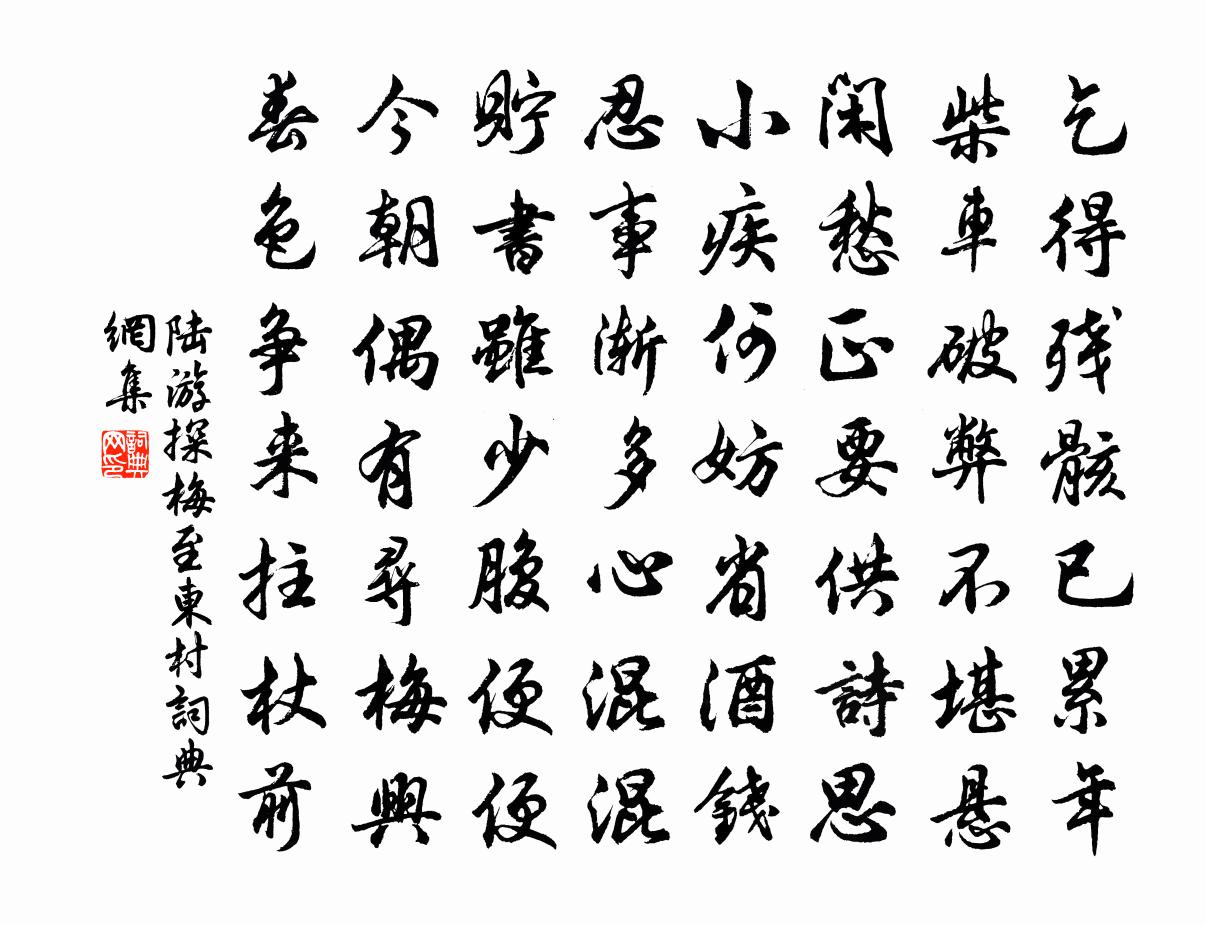 乞得残骸已累年
柴車破弊不堪悬
闲愁正要供詩思
小疾何妨省酒錢
忍事渐多心混混
貯書雖少腹便便
今朝偶有尋梅興
春色争来拄杖前
陆游探梅至東村詞典
網集
詞典
网印